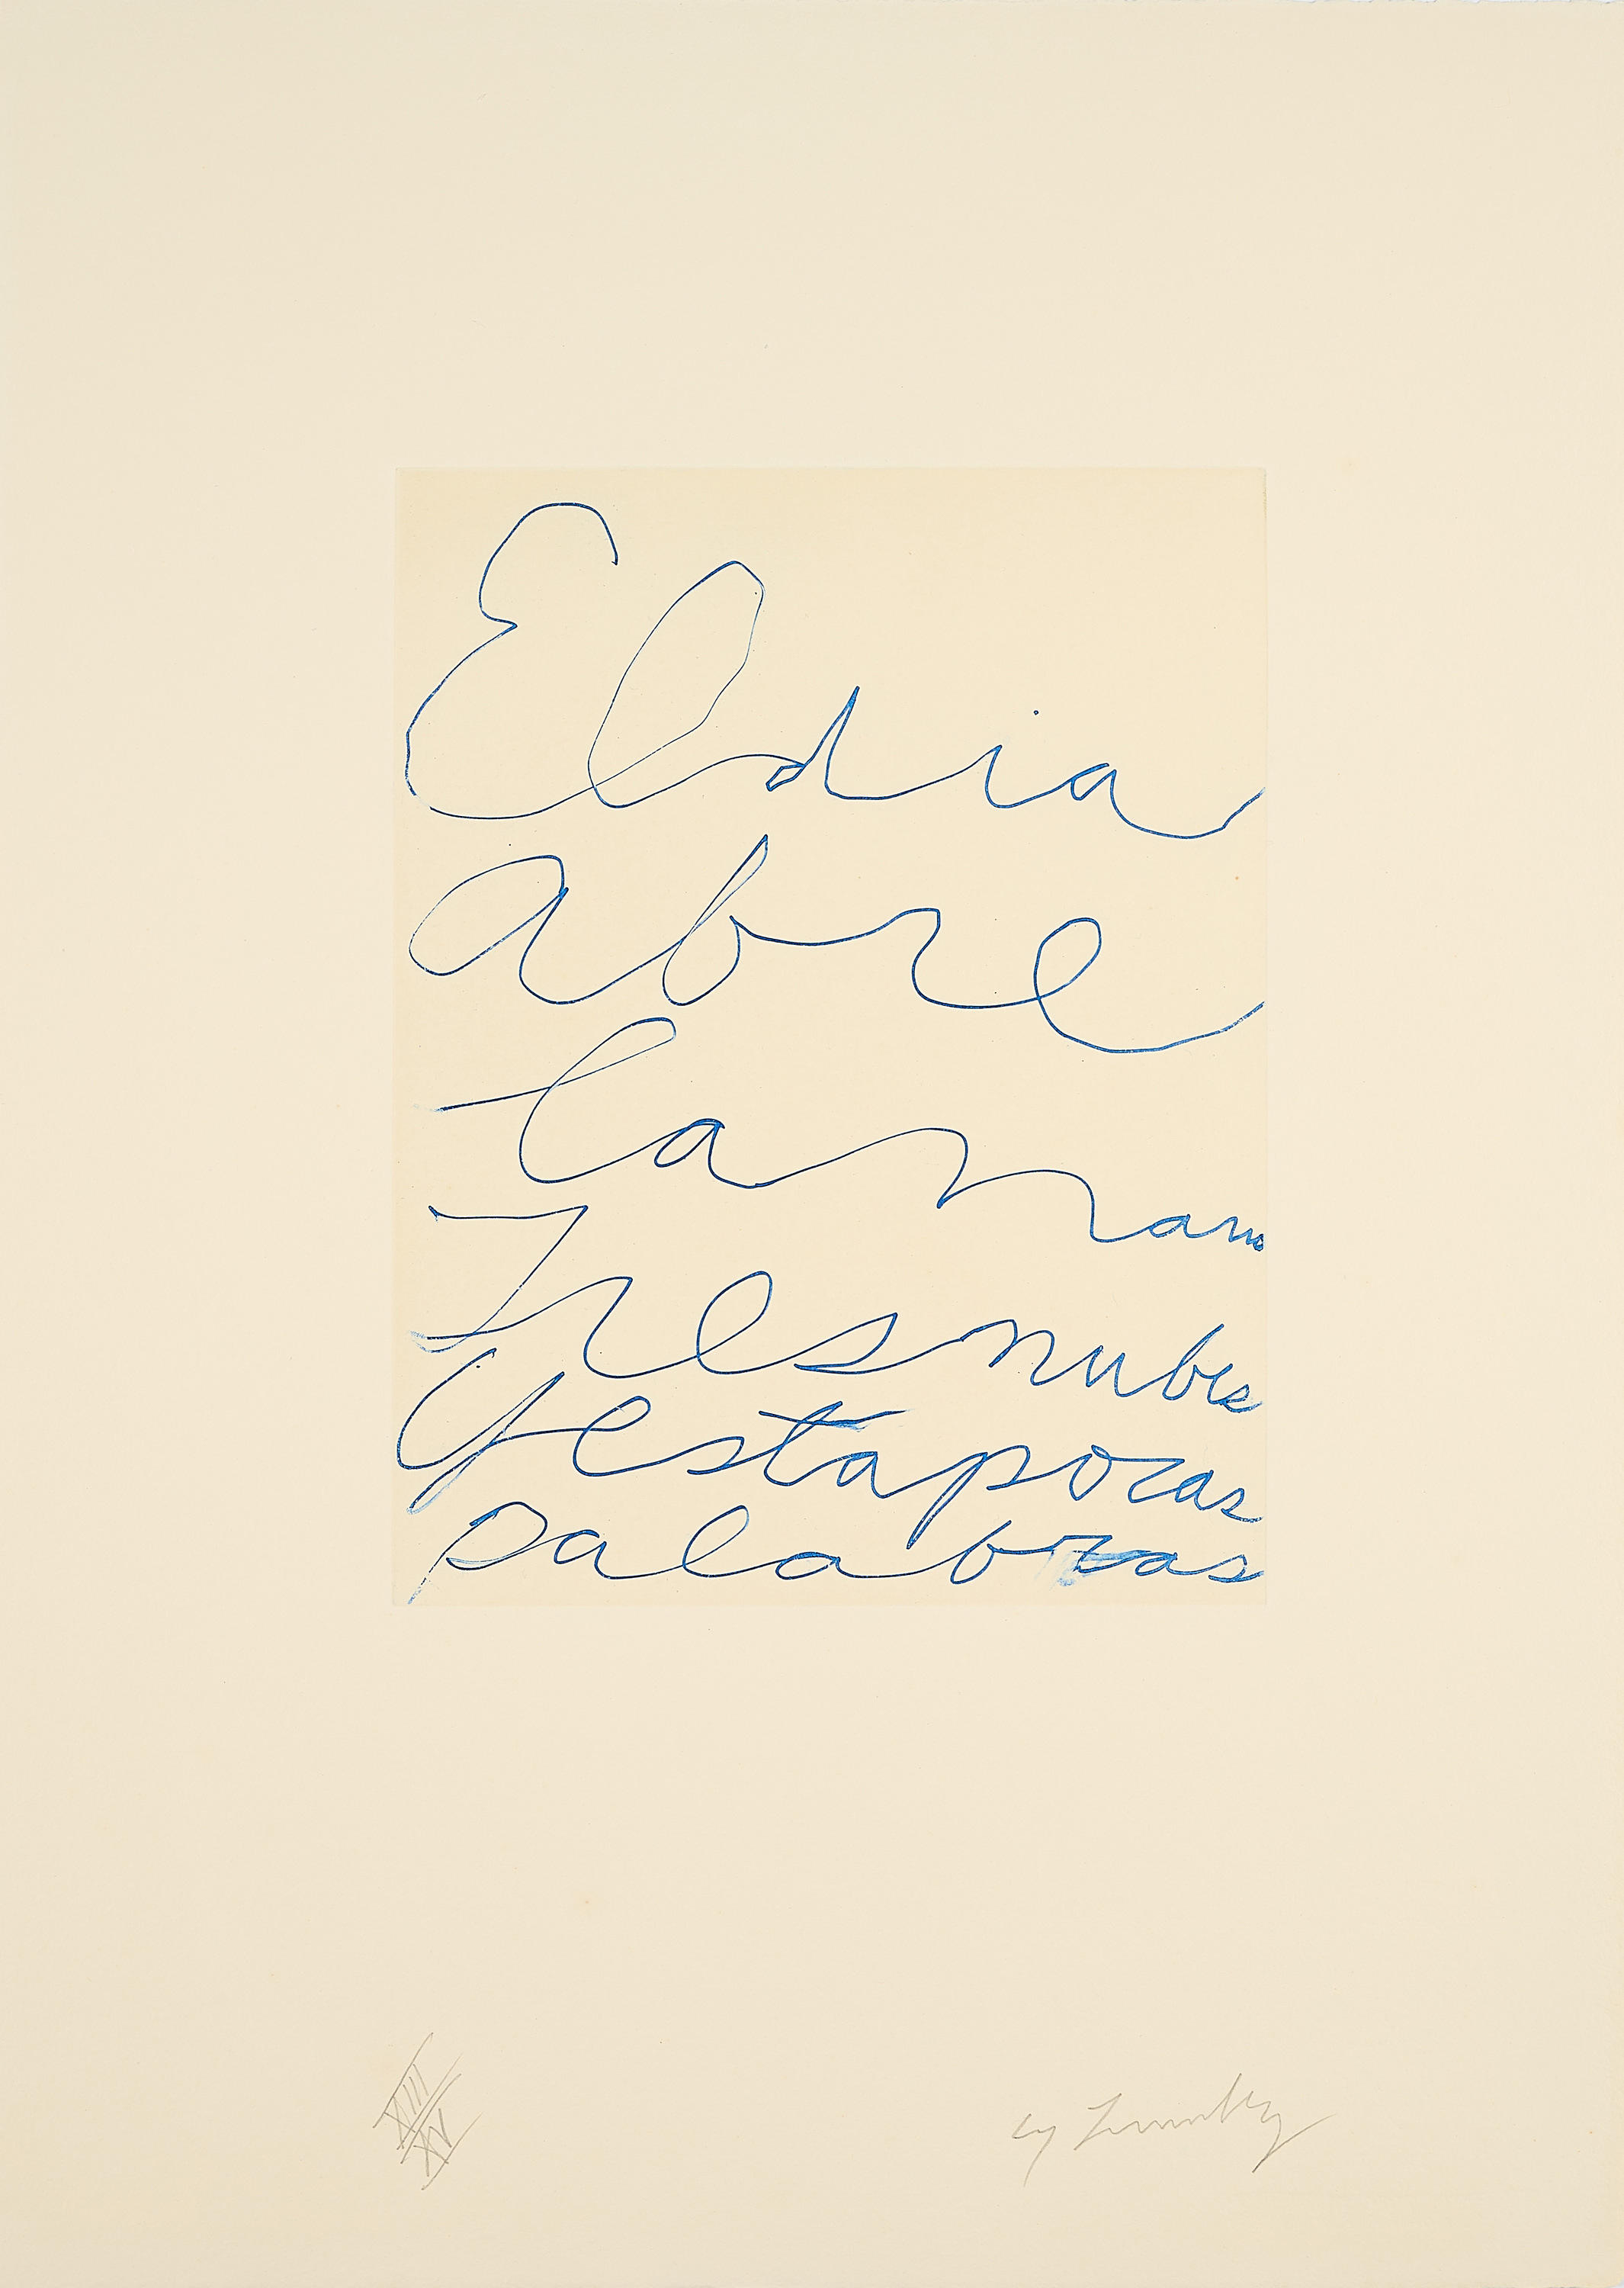 El dia
abre
la mano
Tres nubes
y esta pocas
palabras
XIII/XV
Cy Twombly